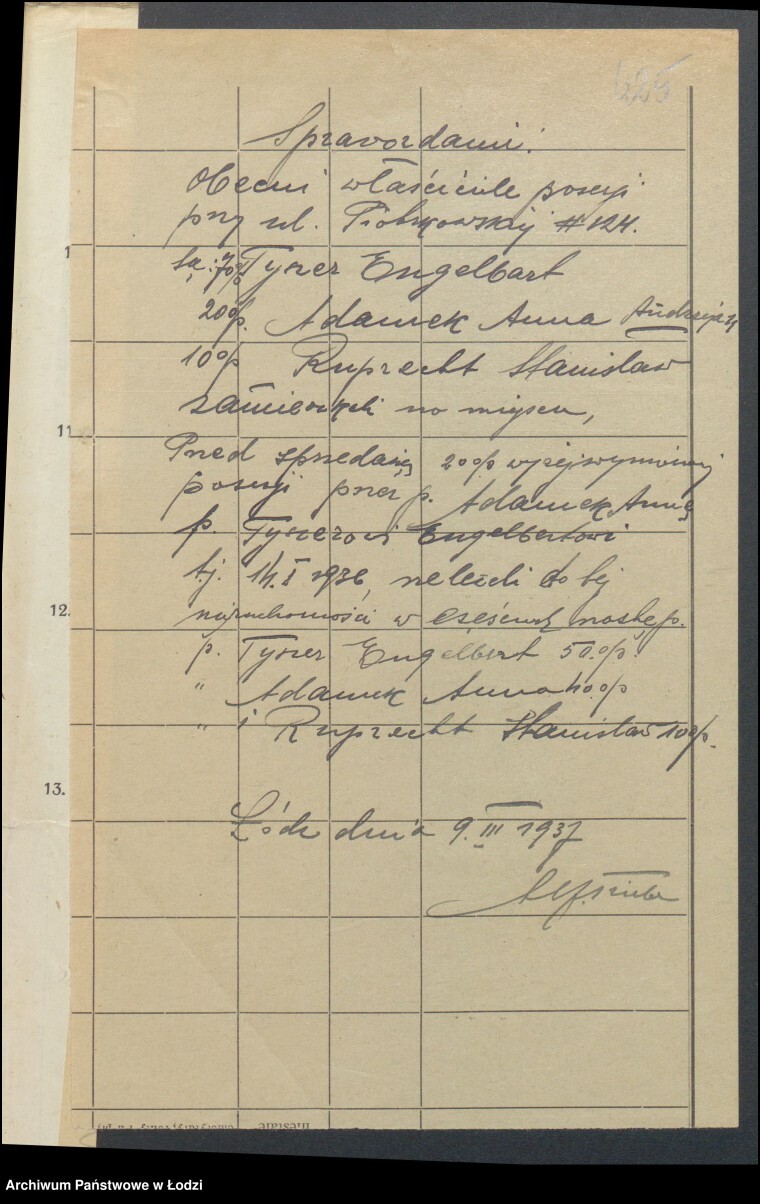 425
Sprawozdanie:
Obecni właściciele posesji
przy ul. Piotrkowskiej # 124.
są: 70% Tyszer Engelbart
20% p. Adamek Anna Andrzeja
10% Ruprecht Stanisław
zamieszkali na miejscu,
Przed sprzedażą 20% wyżejwymienionej
posesji przez p. Adamek Annę
p. Tyszerowi Engelbertowi
t.j. 14.I 1936, należeli do tej
nieruchomości w częściach następ.
p. Tyszer Engelbert 50.%
" Adamek Anna 40.%
" i Ruprecht Stanisław 10%.
Łódź dnia 9.III 1937
11
12.
13.
Archiwum Państwowe w Łodzi